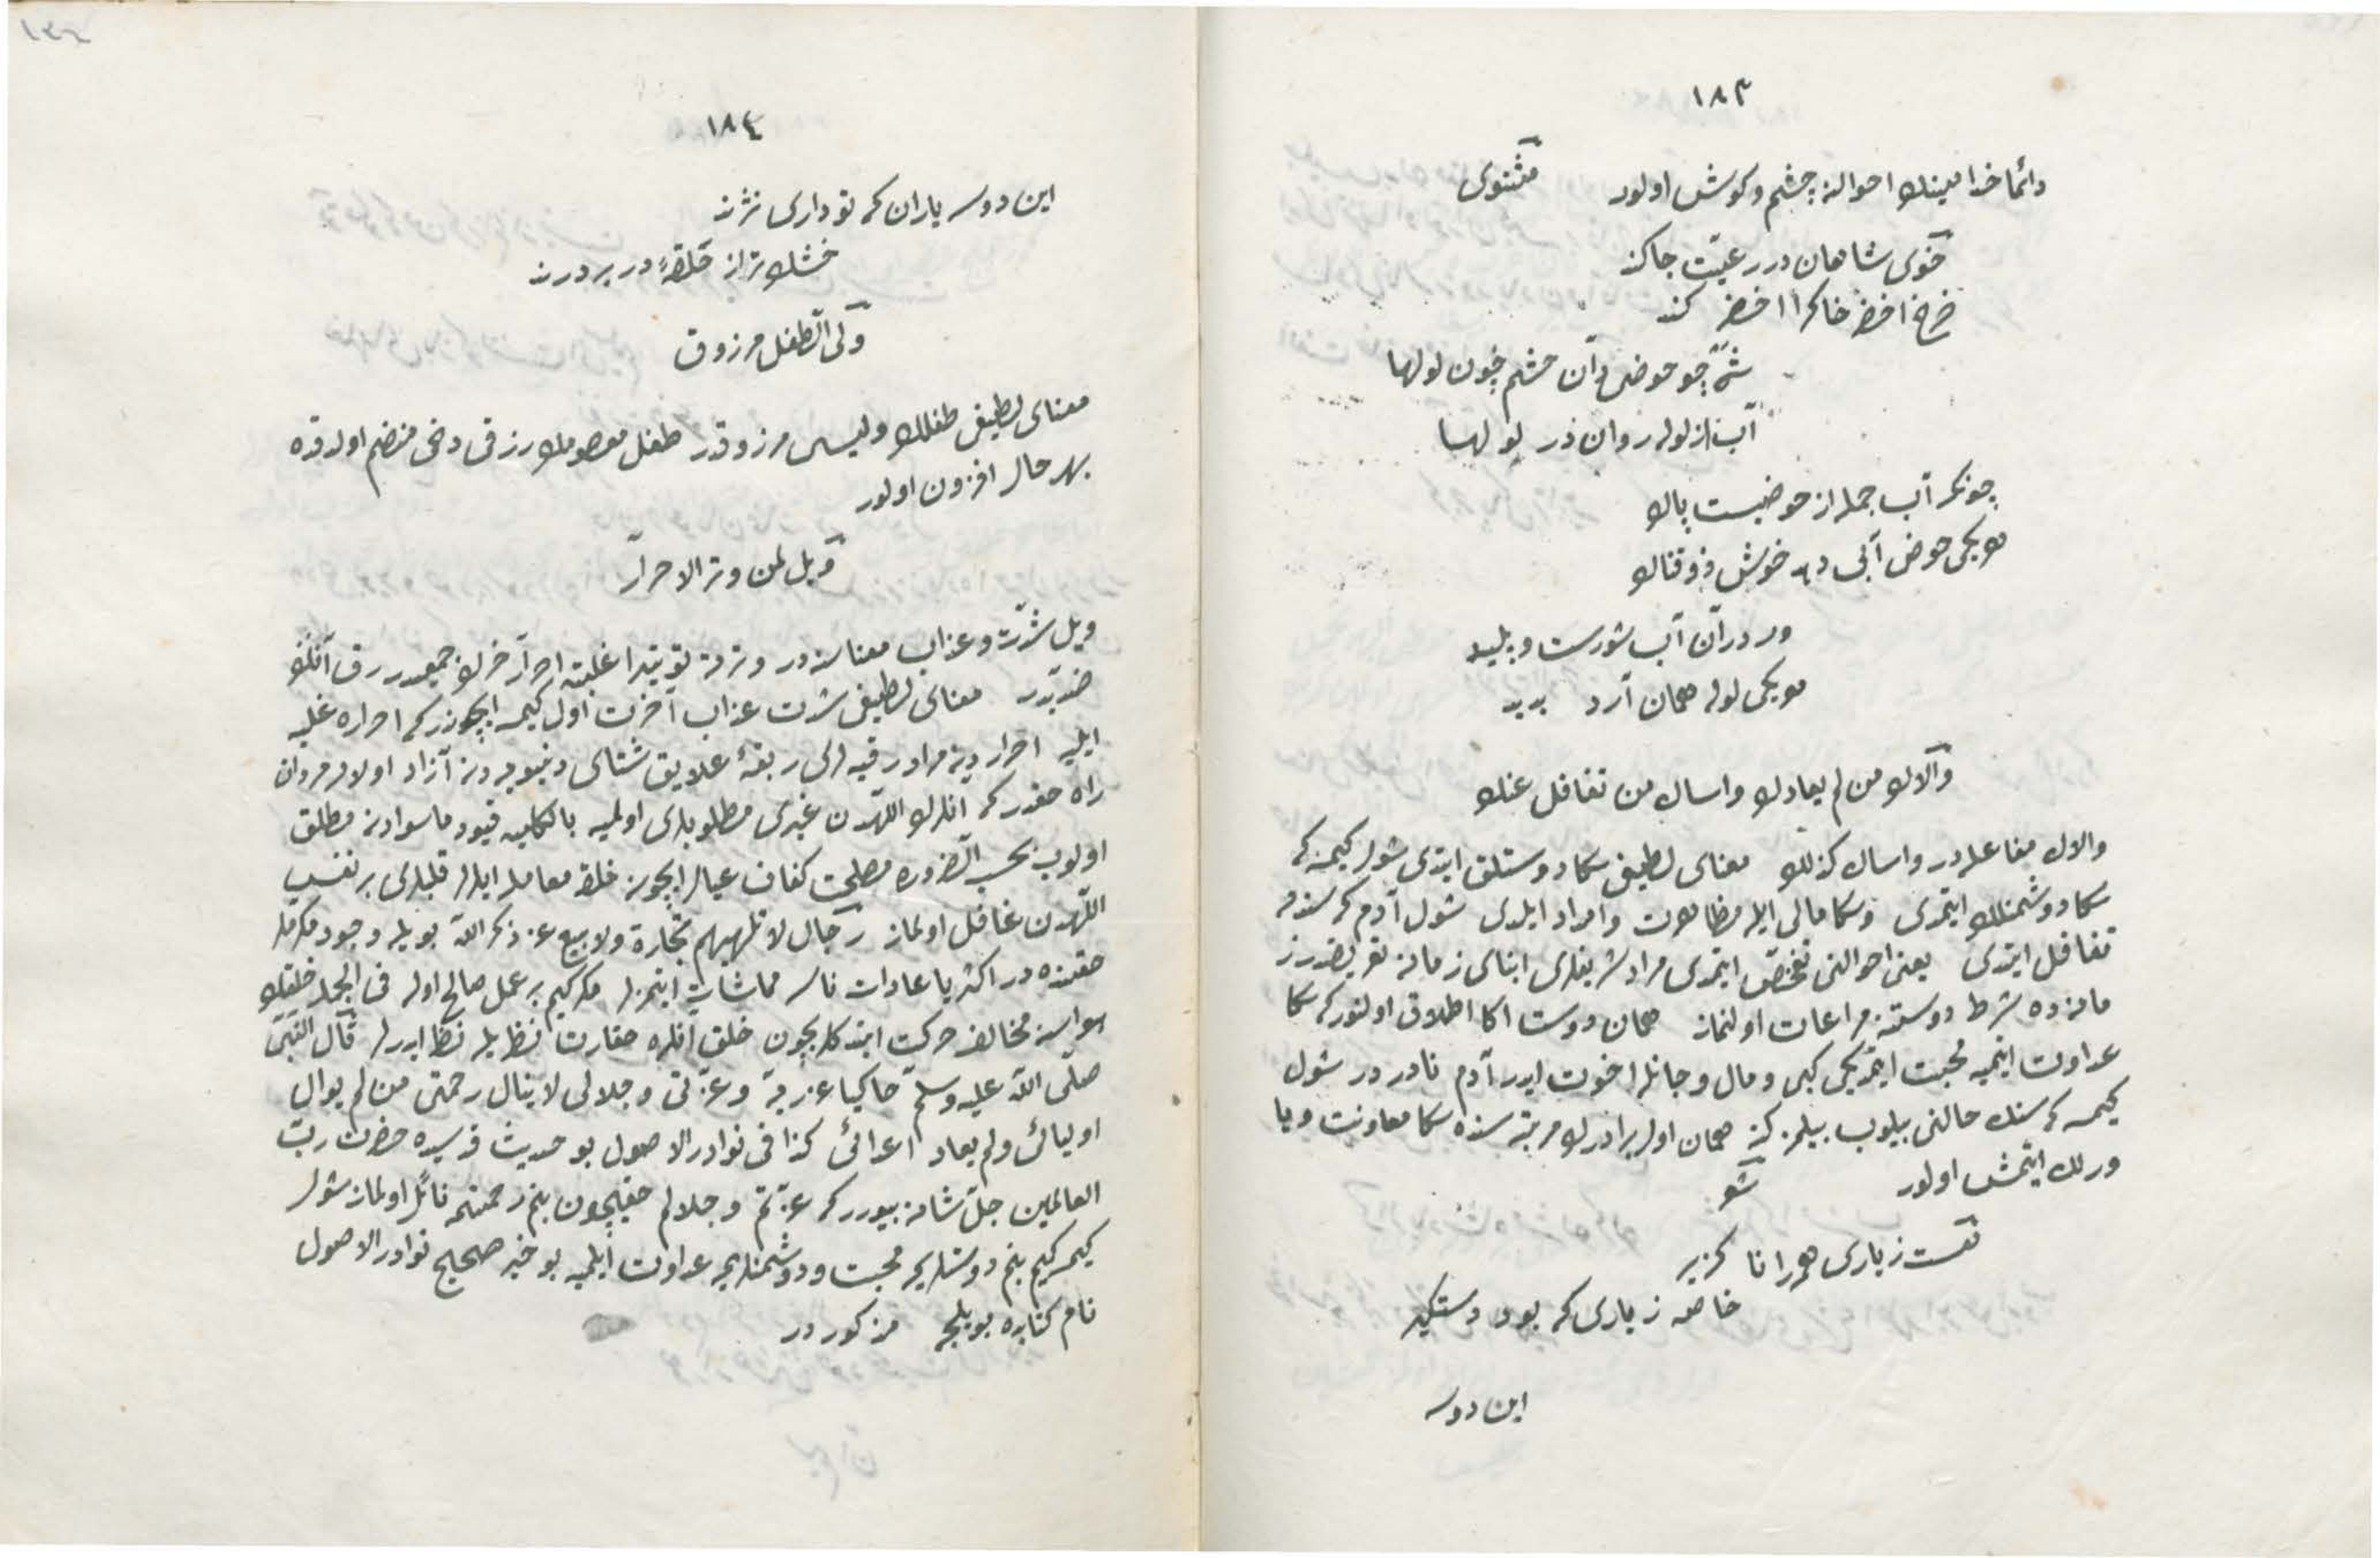 ١٨٣
دائما خدامينك احوالنه چشم وكوش اولور مثنوى
خوى شاهان در رعيت جا كند
چرخ اخضر خاكرا اخضر كند
شه چو حوضى دان حشم چون لولها
آب از لوله روان در لولها
چونكه آب جمله از حوضيست پاك
هر يكى حوض آبى دهد خوش ذوقناك
ور در آن آب شورست وپليد
هر يكى لوله همان آرد پديد
والاك من لم يعادك واساك من تغافل عنك
والاك مفاعله در واساك كذلك معناى لطيفى سكا دوستلق ايتدى شول كيمسه كه
سكا دوشمنلك ايتمدى وسكا مالى ايله مظاهرت وامداد ايلدى شول آدم كه سندن
تغافل ايتدى يعنى احوالنى تفحص ايتمدى مراد شريفلرى ابناى زمانه تعريضدر زيرا
مانزده شرط دوستى مراعات اولنماز همان دوست اكا اطلاق اولنور كه سكا
عداوت ايتميه محبت ايتمز يكى كبى ومال وجانله اخوت ايدر آدم نادر در شول
كيمسه كه سنك حالنى بيلوب بيلمزلنه همان اول برادرلك مرتبه سنده سكا معاونت ويا
ورلك ايتمش اولور شعر
نيست ز يارى همه را ناگزير
خاصه ز يارى كه بود دستگير
اين دوسه
١٨٤
اين دوسه ياران كه تو دارى ترند
خشك تر از حلقهٔ در بر درند
ولى الطفل مرزوق
معناى لطيفى طفلك وليسى مرزوقدر طفل معصومك رزقى دخى منضم اولدقده
بهر حال افزون اولور
ويل لمن وتر الاحرار
ويل شدت وعذاب معناسنه در وتر غلبه احرار حرك جمعيدر رق آنك
ضديدر معناى لطيفى شدت عذاب آخرت اول كيمسه ايچوندر كه احراره غلبه
ايليه احراردن مراد رقيه لرى ربقهٔ علايق شتاى دنيويه دن آزاد اولان مردان
راه حقدر كه انلرك اللهدن غيرى مطلوبلرى اولميه بالكليه قيود ماسوادن مطلق
اولوب بحسب الضروره مصلحت كفاف عيال ايچون خلقله معامله ايدرلر قلبلرى بر نفس
اللهدن غافل اولماز رجال لا تلهيهم تجارة ولا بيع عن ذكر الله بويله وجود مكرمله
حقنده در اكثريا عادات ناسه مماشات ايتمزلر مكر كيم بر عمل صالح اوله فى الجمله خلقك
هواسنه مخالف حركت ايتدكلريچون خلق انلره حقارت نظريله نظر ايدرلر قال النبى
صلى الله عليه وسلم حاكيا عن ربه وعزتى وجلالى لا ينال رحمتى من لم يوال
اوليائى ولم يعاد اعدائى كذا فى نوادر الاصول بو حديث قدسيده حضرت رب
العالمين جل شانه بيورر كه عزتم وجلالم حقيچون بنم رحمتمه نائل اولماز شول
كيمسه كيم بنم دوستلريمه محبت ودوشمنلريمه عداوت ايلميه بو خبر صحيح نوادر الاصول
نام كتابده بويلجه مذكور در